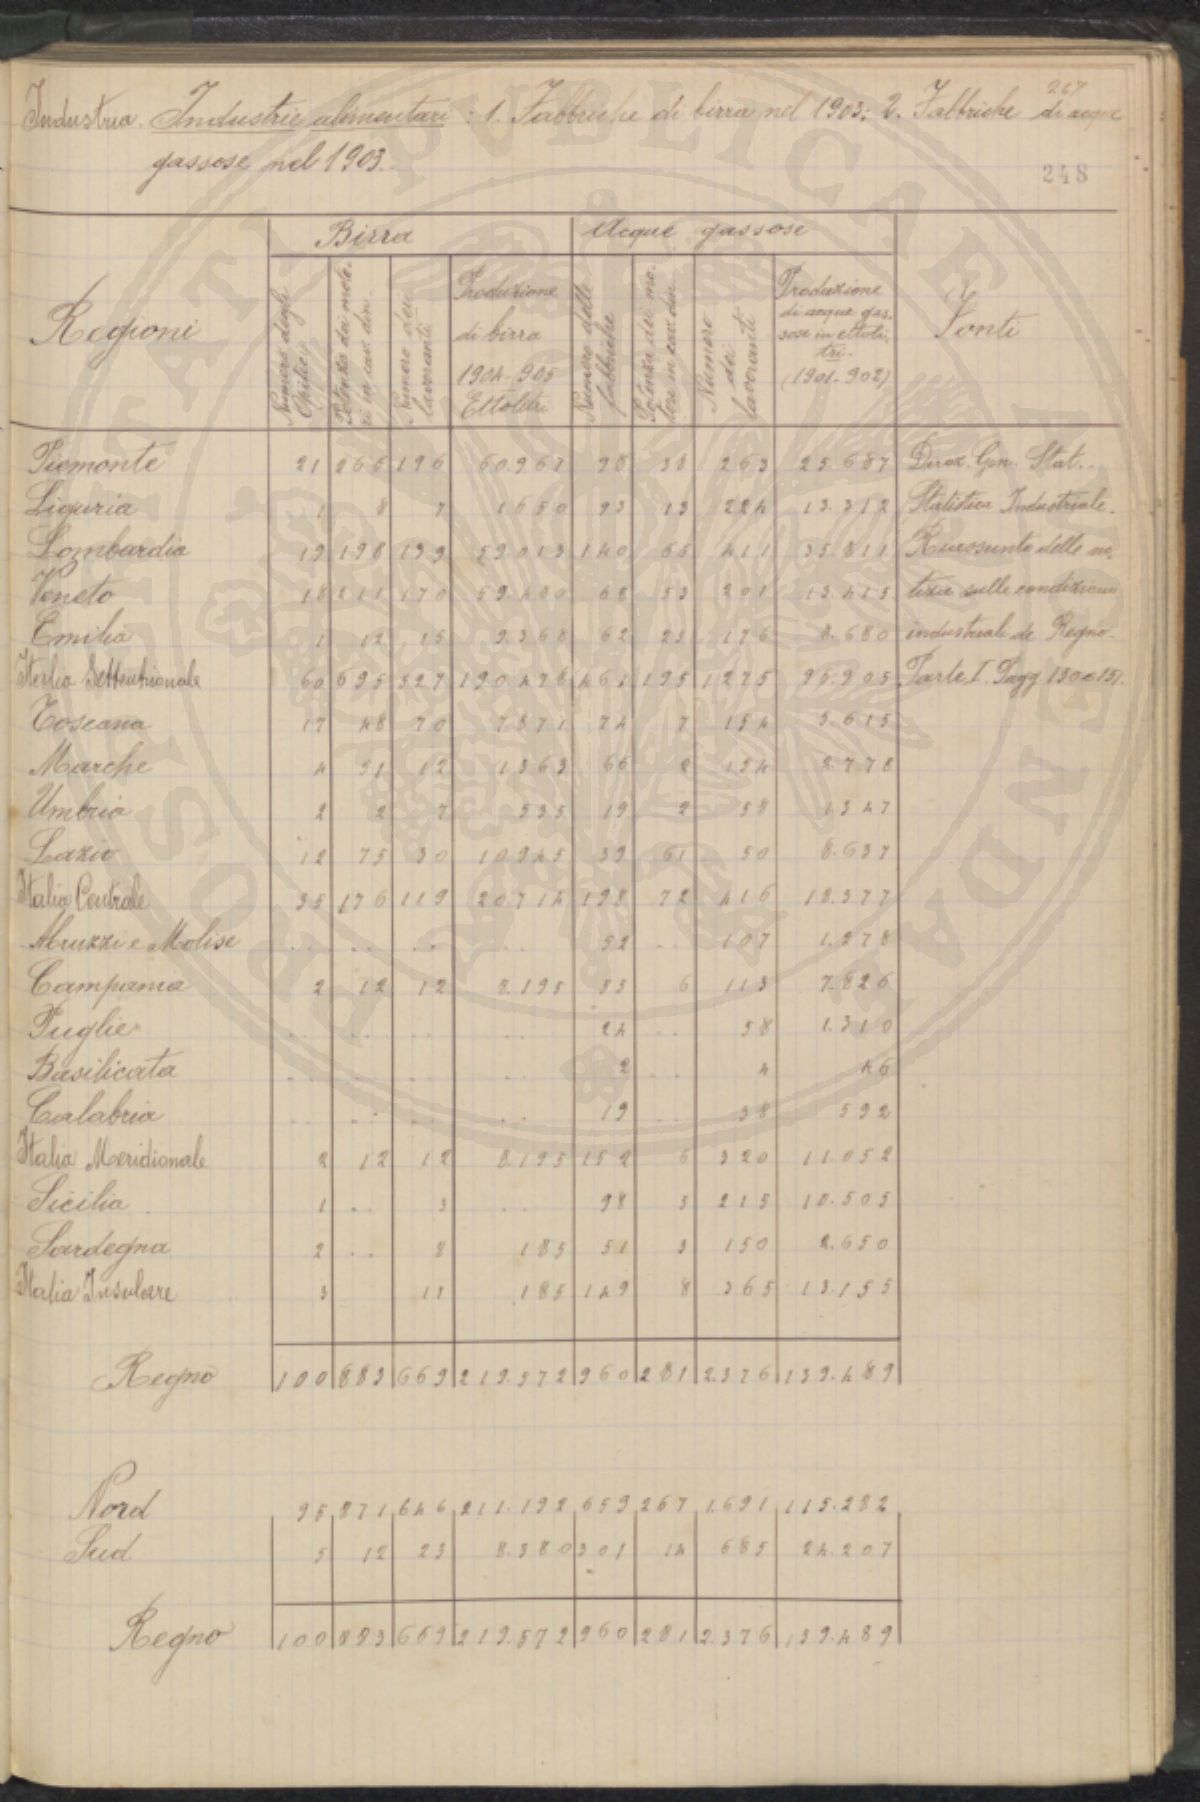 267
Industria. Industrie alimentari: 1. Fabbriche di birra nel 1903; 2. Fabbriche di acque
gassose nel 1903.
248
Regioni Birra Acque gassose Fonti
Numero degli Opifici
Potenza dei moto- ri in cav. din.
Numero dei lavoranti
Produzione di birra 1904-905 Ettolitri
Numero delle fabbriche
Potenza dei mo- tori in cav. din.
Numero dei lavoranti
Produzione di acque gas- sose in ettoli- tri. (1901-902)
Piemonte 21 266 196 60.967 98 38 263 25.687 Direz. Gen. Stat..
Liguria 1 8 7 1650 93 13 224 13.312 Statistica Industriale.
Lombardia 19 198 139 59.013 140 66 411 35.811 Riassunto delle no-
Veneto 18 211 170 59.400 68 53 201 13.415 tizie sulle condizioni
Emilia 1 12 15 9.368 62 25 176 8.680 industriali de Regno-
Italia Settentrionale 60 695 527 190.476 461 195 1275 96.905 Parte I. Pagg 150 e 151.
Toscana 17 48 70 7.871 74 7 154 5.615
Marche 4 51 12 1.363 66 2 154 2.778
Umbria 2 2 7 535 19 2 58 1347
Lazio 12 75 30 10.945 39 61 50 8.637
Italia Centrale 35 176 119 20.714 198 72 416 18.377
Abruzzi e Molise .. .. .. .. 52 .. 107 1.278
Campania 2 12 12 8.195 55 6 113 7.826
Puglie .. .. .. .. 24 .. 58 1.310
Basilicata .. .. .. .. 2 .. 4 46
Calabria .. .. .. .. 19 .. 38 592
Italia Meridionale 2 12 12 8.195 152 6 320 11.052
Sicilia 1 .. 3 .. 98 5 215 10.505
Sardegna 2 .. 8 185 51 3 150 2.650
Italia Insulare 3 11 185 149 8 365 13.155
Regno 100 883 669 219.572 960 281 2.376 139.489
Nord 95 871 646 211.192 659 267 1.691 115.282
Sud 5 12 23 8.380 301 14 685 24.207
Regno 100 883 669 219.572 960 281 2.376 139.489